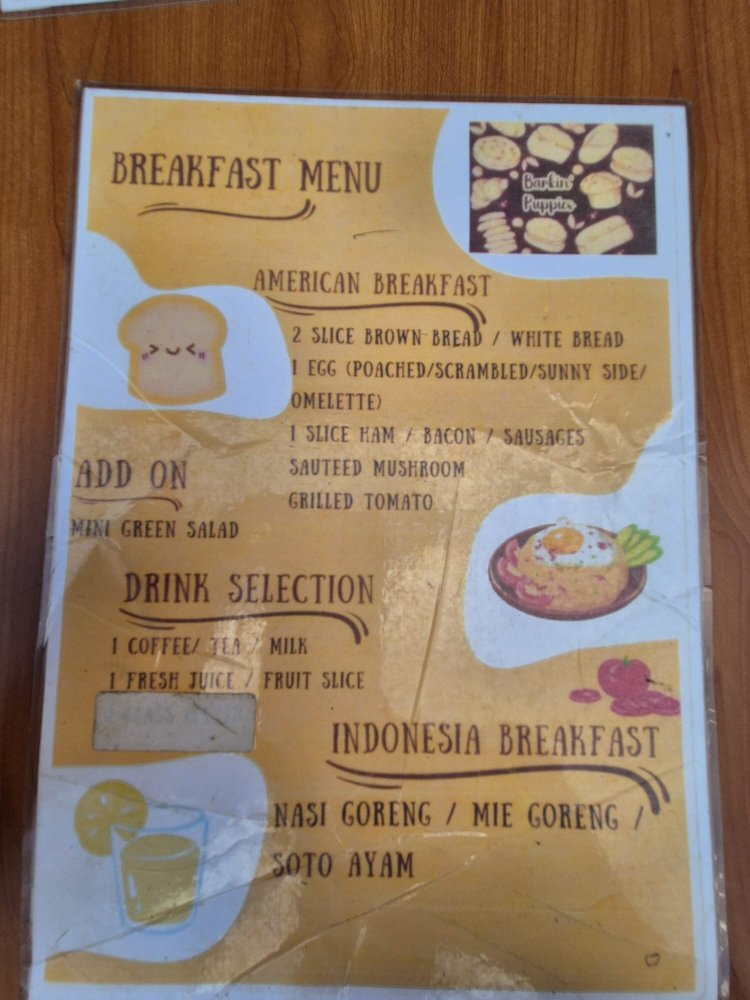 BREAKFAST MENU
Barkin'
Puppies
AMERICAN BREAKFAST
2 SLICE BROWN BREAD / WHITE BREAD
1 EGG (POACHED/SCRAMBLED/SUNNY SIDE/
OMELETTE)
1 SLICE HAM / BACON / SAUSAGES
SAUTEED MUSHROOM
GRILLED TOMATO
ADD ON
MINI GREEN SALAD
DRINK SELECTION
1 COFFEE/ TEA / MILK
1 FRESH JUICE / FRUIT SLICE
INDONESIA BREAKFAST
NASI GORENG / MIE GORENG /
SOTO AYAM